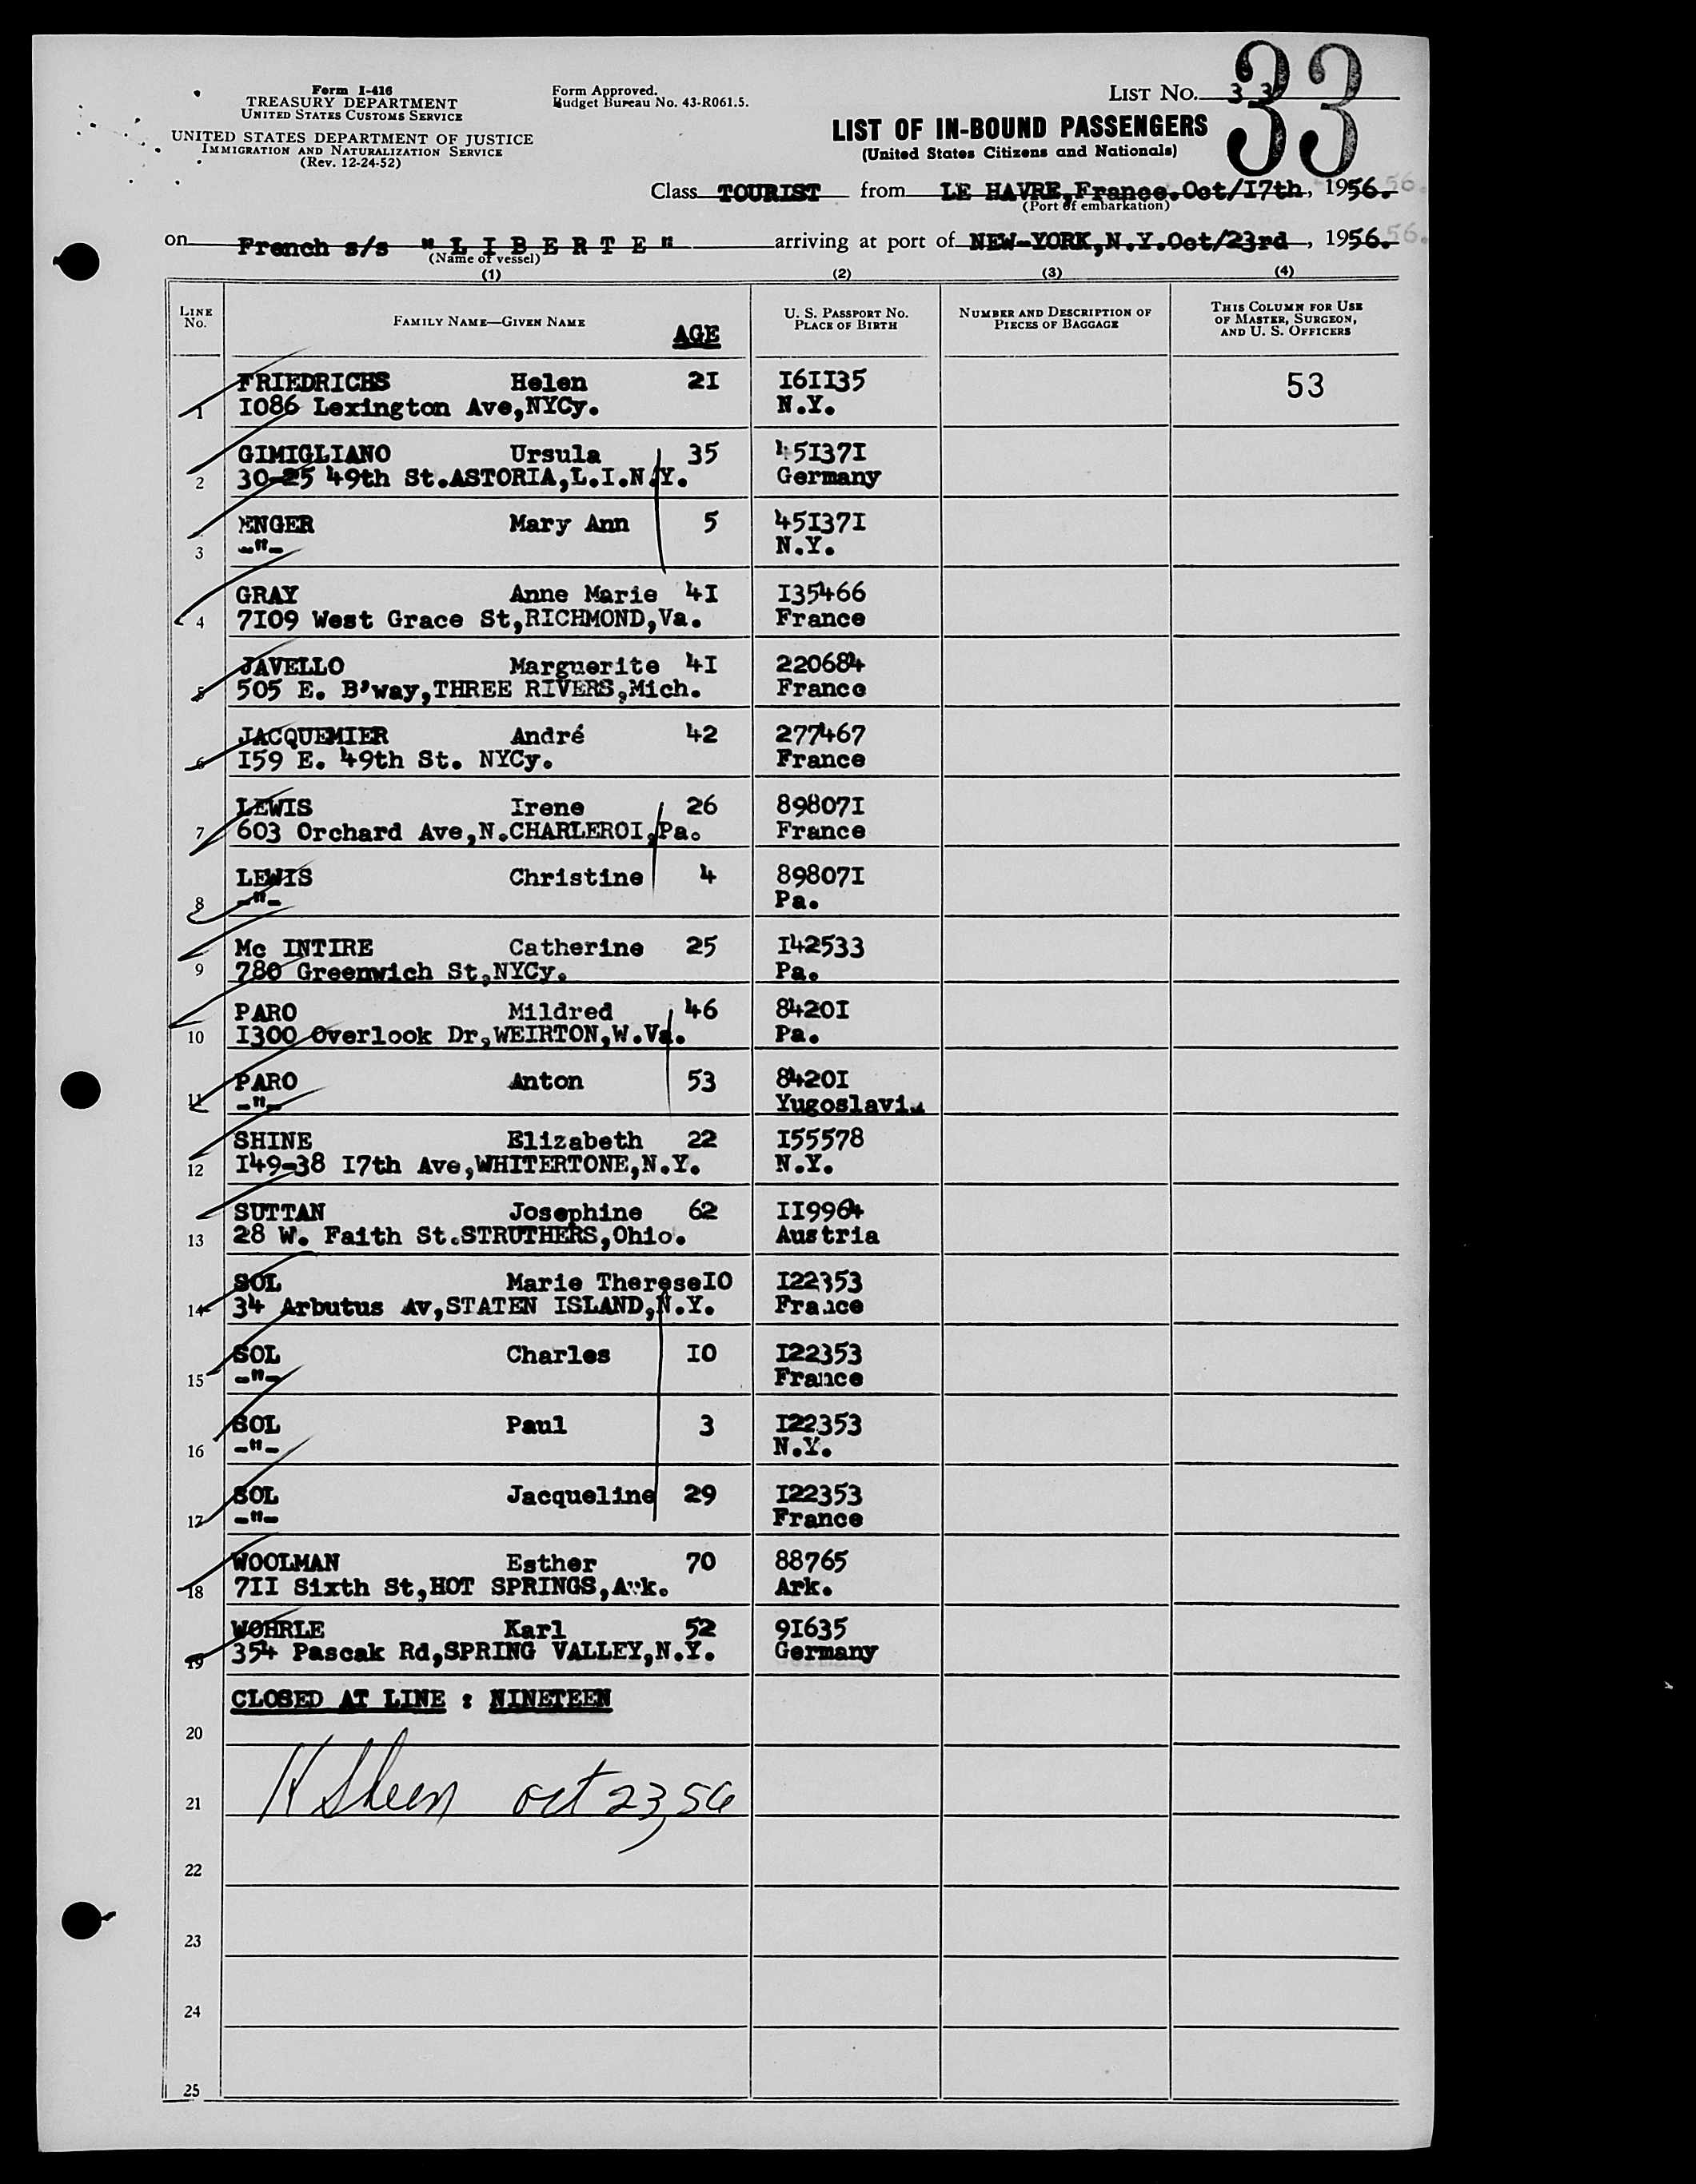 33
Form I-416
TREASURY DEPARTMENT
UNITED STATES CUSTOMS SERVICE
UNITED STATES DEPARTMENT OF JUSTICE
IMMIGRATION AND NATURALIZATION SERVICE
(Rev. 12-24-52)
Form Approved.
Budget Bureau No. 43-R061.5.
LIST No. 33
LIST OF IN-BOUND PASSENGERS
(United States Citizens and Nationals)
Class TOURIST from LE HAVRE,France.Oct/I7th, 1956.
(Port of embarkation)
on French s/s "L I B E R T E" arriving at port of NEW-YORK,N.Y.Oct/23rd, 1956.
(Name of vessel)
(1) (2) (3) (4)
LINE No. FAMILY NAME—GIVEN NAME AGE U. S. PASSPORT NO. PLACE OF BIRTH NUMBER AND DESCRIPTION OF PIECES OF BAGGAGE THIS COLUMN FOR USE OF MASTER, SURGEON, AND U. S. OFFICERS
FRIEDRICHS Helen 2I I6II35 53
1 I086 Lexington Ave,NYCy. N.Y.
GIMIGLIANO Ursula 35 45I37I
2 30-25 49th St.ASTORIA,L.I.N.Y. Germany
ENGER Mary Ann 5 45I37I
3 -"- N.Y.
GRAY Anne Marie 4I I35466
4 7I09 West Grace St,RICHMOND,Va. France
JAVELLO Marguerite 4I 220684
5 505 E. B'way,THREE RIVERS,Mich. France
JACQUEMIER André 42 277467
6 I59 E. 49th St. NYCy. France
LEWIS Irene 26 89807I
7 603 Orchard Ave,N.CHARLEROI,Pa. France
LEWIS Christine 4 89807I
8 -"- Pa.
Mc INTIRE Catherine 25 I42533
9 780 Greenwich St,NYCy. Pa.
PARO Mildred 46 8420I
10 I300 Overlook Dr,WEIRTON,W.Va. Pa.
PARO Anton 53 8420I
11 -"- Yugoslavia
SHINE Elizabeth 22 I55578
12 I49-38 I7th Ave,WHITERTONE,N.Y. N.Y.
SUTTAN Josephine 62 II9964
13 28 W. Faith St.STRUTHERS,Ohio. Austria
SOL Marie Therese I0 I22353
14 34 Arbutus Av,STATEN ISLAND,N.Y. France
SOL Charles I0 I22353
15 -"- France
SOL Paul 3 I22353
16 -"- N.Y.
SOL Jacqueline 29 I22353
17 -"- France
WOOLMAN Esther 70 88765
18 7II Sixth St,HOT SPRINGS,Ark. Ark.
WOHRLE Karl 52 9I635
19 354 Pascak Rd,SPRING VALLEY,N.Y. Germany
CLOSED AT LINE : NINETEEN
20
21 H Sheen Oct 23, 56
22
23
24
25